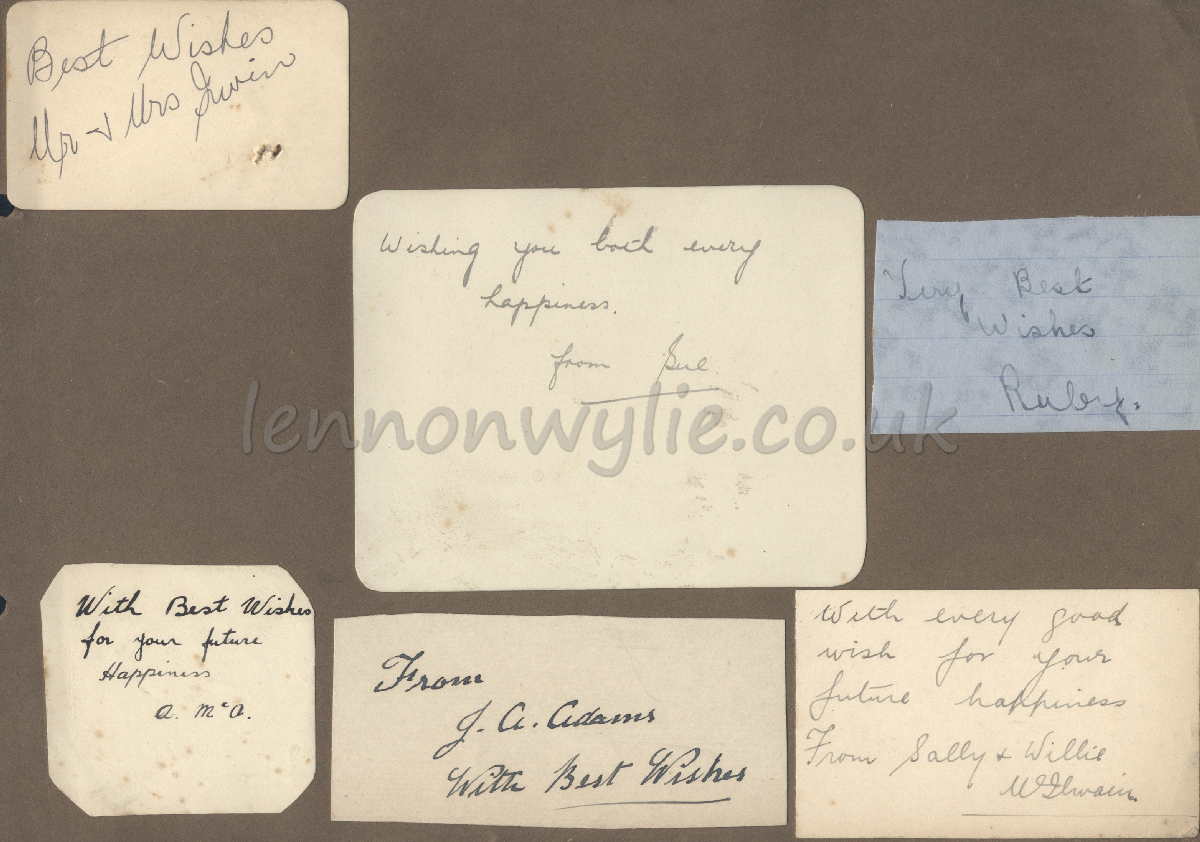 Best Wishes
Mr & Mrs Irwin
Wishing you both every
happiness.
from Sue
Very Best
Wishes
Ruby.
lennonwylie.co.uk
With Best Wishes
for your future
Happiness
A. McA.
From
J. A. Adams
With Best Wishes
With every good
wish for your
future happiness
From Sally & Willie
McIlwain